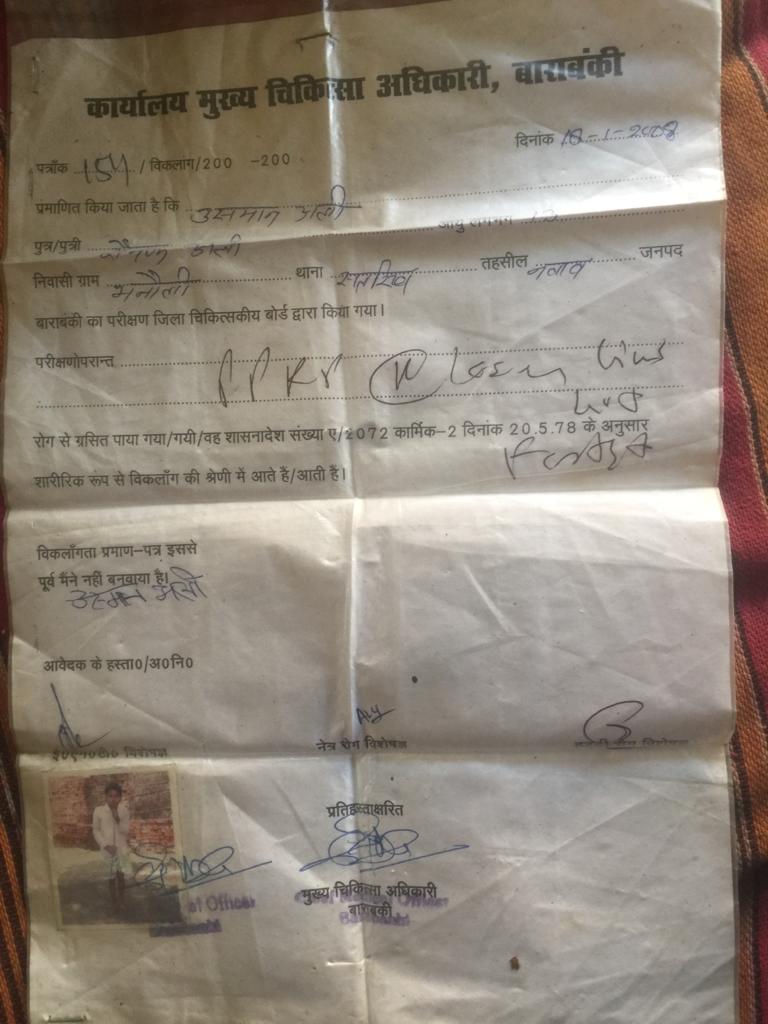 कार्यालय मुख्य चिकित्सा अधिकारी, बाराबंकी
दिनांक 18-1-2008
पत्राँक 154 / विकलांग/200 -200
प्रमाणित किया जाता है कि उसमान अली
आयु लगभग
पुत्र/पुत्री अली
निवासी ग्राम मनौली थाना सतरिख तहसील नवाब जनपद
बाराबंकी का परीक्षण जिला चिकित्सकीय बोर्ड द्वारा किया गया।
परीक्षणोपरान्त PPRP
रोग से ग्रसित पाया गया/गयी/वह शासनादेश संख्या ए/2072 कार्मिक-2 दिनांक 20.5.78 के अनुसार
शारीरिक रूप से विकलाँग की श्रेणी में आते है/आती है।
विकलाँगता प्रमाण-पत्र इससे
पूर्व मैंने नहीं बनवाया है।
उस्मान अली
आवेदक के हस्ता0/अ0नि0
विशेषज्ञ
नेत्र रोग विशेषज्ञ
प्रतिहस्ताक्षरित
मुख्य चिकित्सा अधिकारी
बाराबंकी
Officer